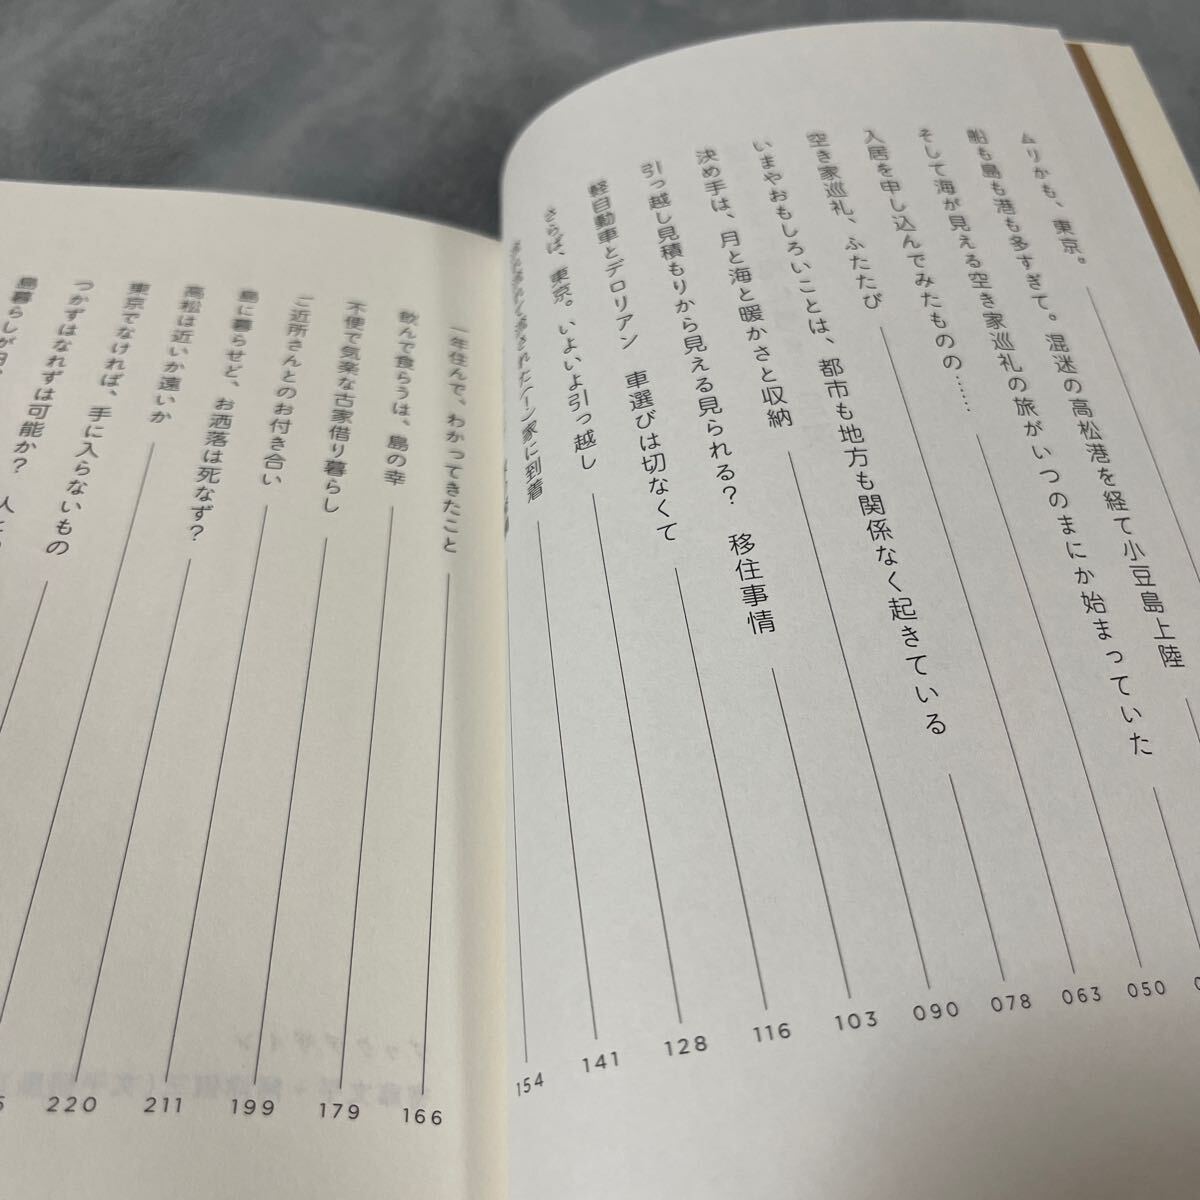 ムリかも、東京。
船も島も港も多すぎて。混迷の高松港を経て小豆島上陸
そして海が見える空き家巡礼の旅がいつのまにか始まっていた
入居を申し込んでみたものの…… 050
空き家巡礼、ふたたび 063
いまやおもしろいことは、都市も地方も関係なく起きている 078
決め手は、月と海と暖かさと収納 090
引っ越し見積もりから見える見られる？　移住事情 103
軽自動車とデロリアン　車選びは切なくて 116
さらば、東京。いよいよ引っ越し 128
家に到着 141
154
一年住んで、わかってきたこと 166
飲んで食らうは、島の幸 179
不便で気楽な古家借り暮らし 199
ご近所さんとのお付き合い 211
島に暮らせど、お洒落は死なず？ 220
高松は近いか遠いか
東京でなければ、手に入らないもの
つかずはなれずは可能か？
島暮らしが